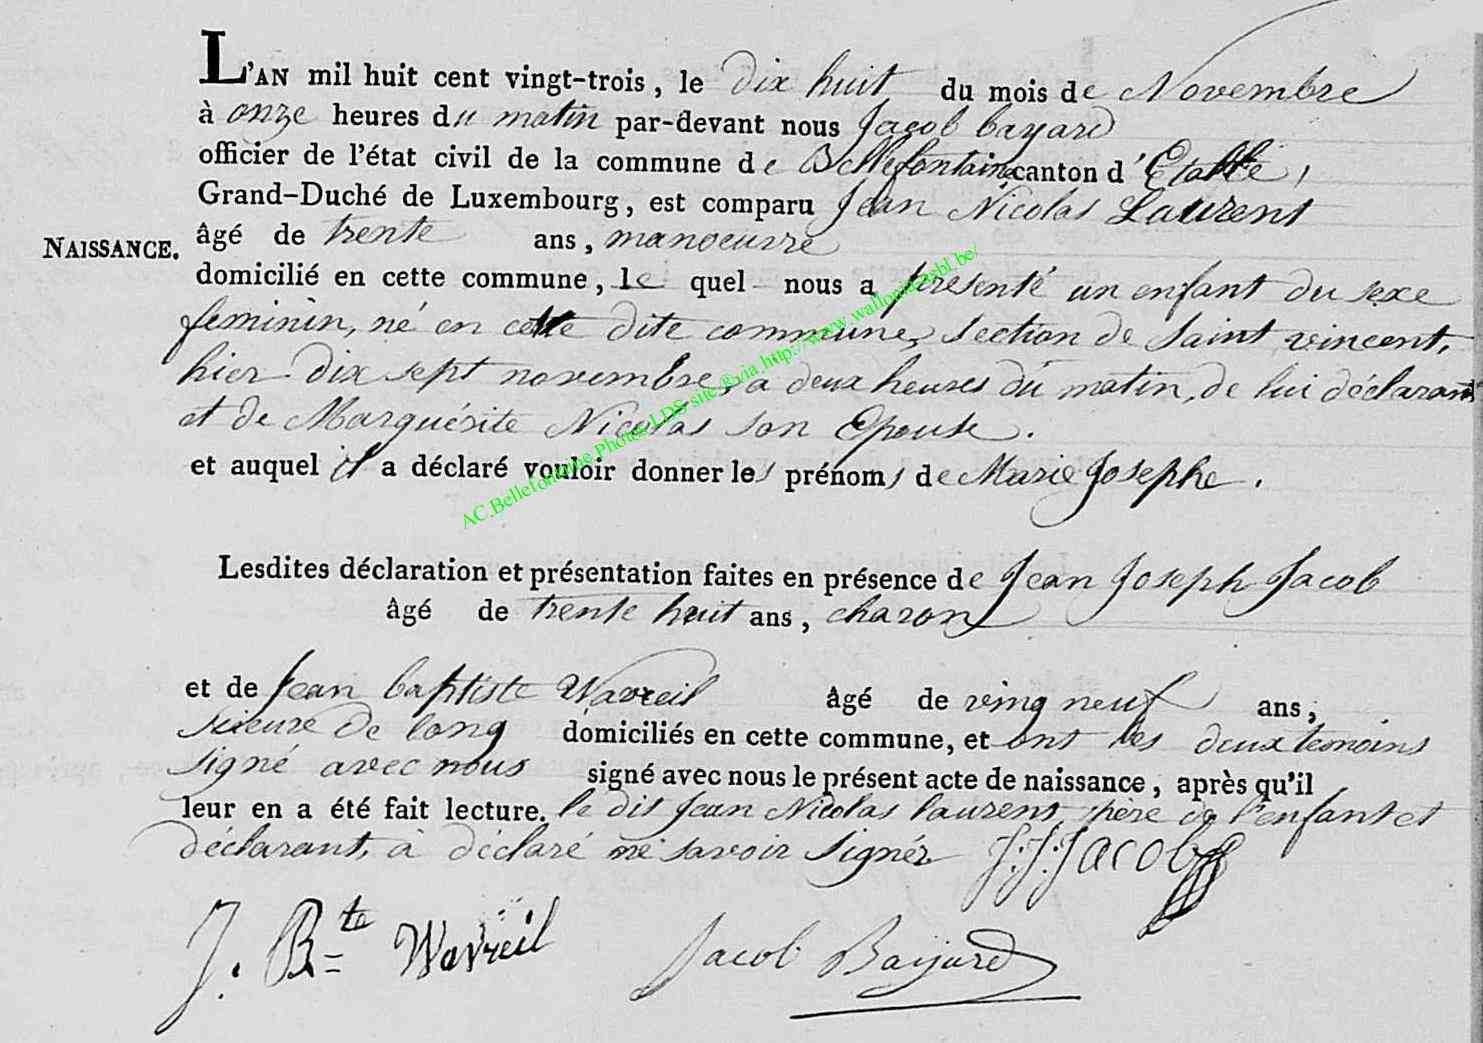 L'AN mil huit cent vingt-trois, le dix huit du mois de Novembre
à onze heures du matin par-devant nous Jacob bayard
officier de l'état civil de la commune de Bellefontaine canton d'Etalle,
Grand-Duché de Luxembourg, est comparu Jean Nicolas Laurent
NAISSANCE. âgé de trente ans, manoeuvre
domicilié en cette commune, le quel nous a presenté un enfant du sexe
feminin, né en cette dite commune, section de Saint vincent,
hier dix sept novembre, a deux heures du matin, de lui déclarant
et de Marguérite Nicolas son Epouse.
et auquel il a déclaré vouloir donner les prénoms de Marie Josephe.
AC.Bellefontaine Photos LDS site ® via http://www.wallonia-asbl.be/
Lesdites déclaration et présentation faites en présence de Jean Joseph Jacob
âgé de trente huit ans, charon
et de Jean baptiste Wavreil âgé de ving neuf ans,
sieure de long domiciliés en cette commune, et ont les deux temoins
signé avec nous signé avec nous le présent acte de naissance, après qu'il
leur en a été fait lecture. le dis Jean Nicolas laurent, père de l'enfant et
déclarant, à déclaré ne savoir signér J:J:Jacob
J. Bte Wavreil Jacob Bayard